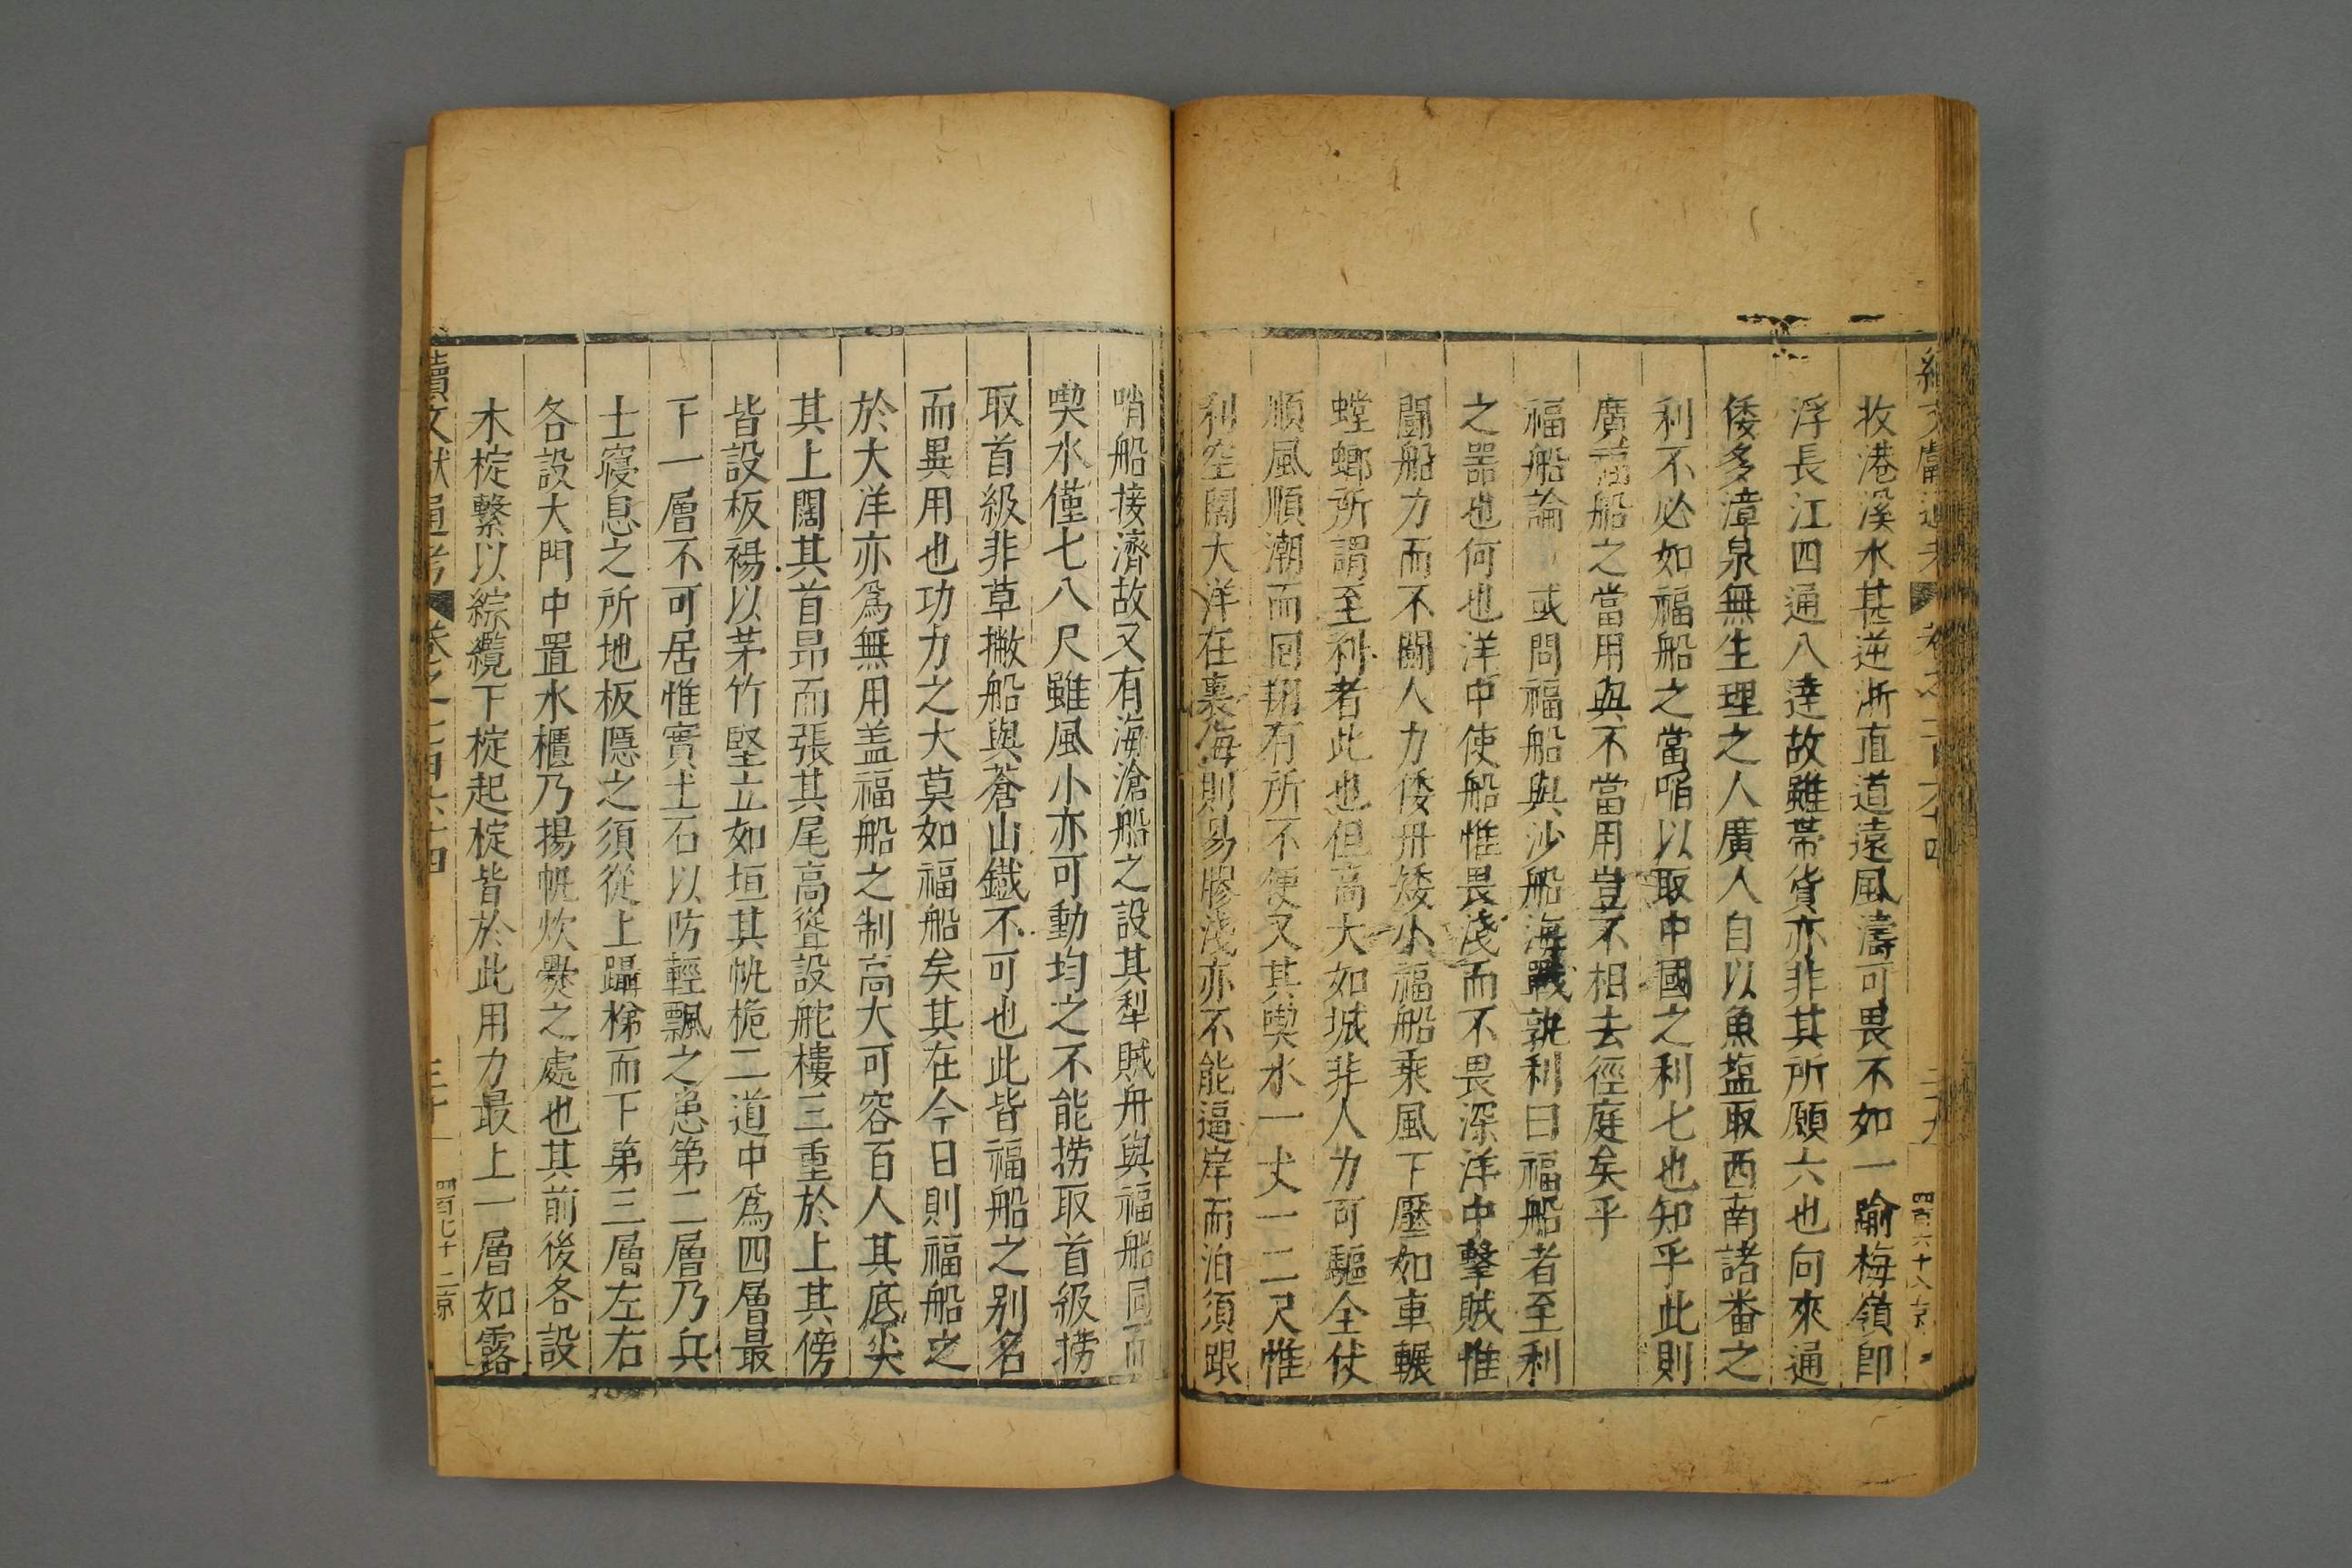 牧港溪水甚逆浙直道遠風濤可畏不如一踰梅嶺即
浮長江四通八達故雖帶貨亦非其所願六也向來通
倭多漳泉無生理之人廣人自以魚塩取西南諸番之
利不必如福船之當啗以取中國之利七也知乎此則
廣福船之當用與不當用豈不相去徑庭矣乎
福船論 或問福船與沙船海戰孰利曰福船者至利
之器也何也洋中使船惟畏淺而不畏深洋中擊賊惟
鬪船力而不鬪人力倭舟矮小福船乘風下壓如車輾
螳螂所謂至利者此也但高大如城非人力可驅全仗
順風順潮而回翔有所不便又其喫水一丈一二尺惟
利空闊大洋在裏海則易膠淺亦不能逼岸而泊須跟
哨船接濟故又有海滄船之設其犁賊舟與福船同而
喫水僅七八尺雖風小亦可動均之不能撈取首級撈
取首級非草撇船與蒼山鐵不可也此皆福船之别名
而異用也功力之大莫如福船矣其在今日則福船之
於大洋亦爲無用盖福船之制高大可容百人其底尖
其上闊其首昂而張其尾高聳設舵樓三重於上其傍
皆設板裼以茅竹堅立如垣其帆桅二道中爲四層最
下一層不可居惟實土石以防輕飄之患第二層乃兵
士寢息之所地板隱之須從上躡梯而下第三層左右
各設大門中置水櫃乃揚帆炊爨之處也其前後各設
木椗繫以綜纜下椗起椗皆於此用力最上一層如露
續文獻通考 卷之 四百七十二